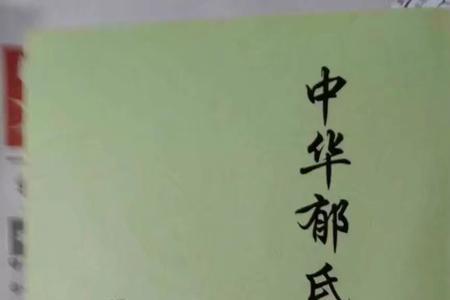 中华郁氏